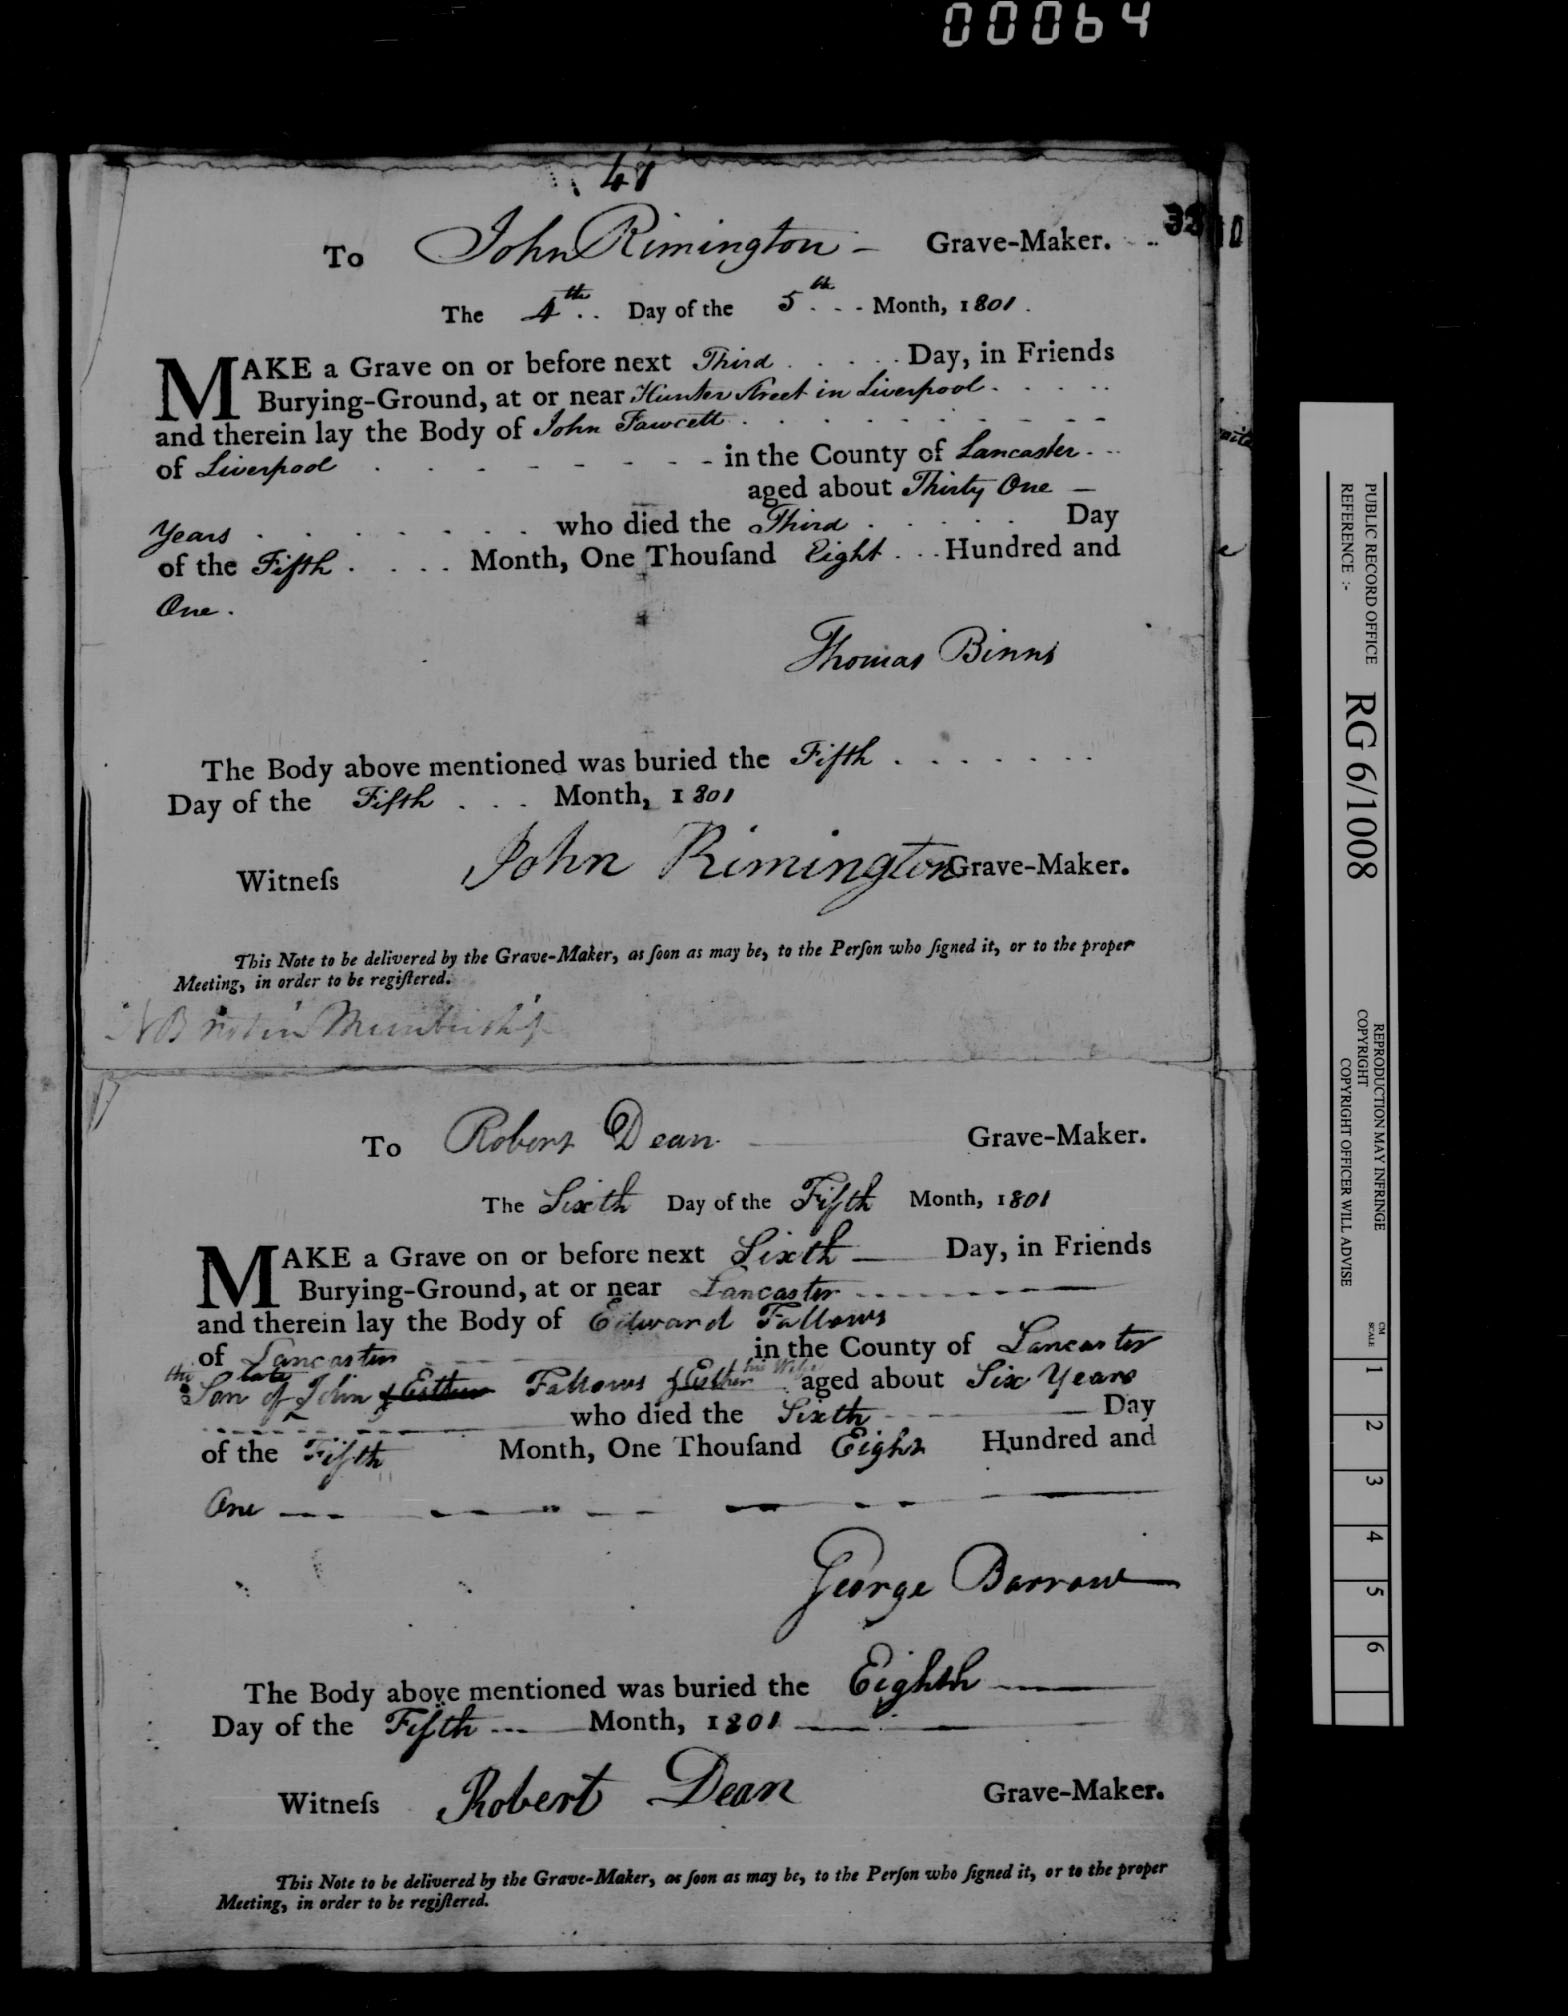 00064
41
33
To John Rimington Grave-Maker.
The 4th Day of the 5th Month, 1801.
MAKE a Grave on or before next Third Day, in Friends
Burying-Ground, at or near Hunter Street in Liverpool
and therein lay the Body of John Fawcett
of Liverpool in the County of Lancaster
aged about Thirty One
Years who died the Third Day
of the Fifth Month, One Thouſand Eight Hundred and
One.
Thomas Binns
The Body above mentioned was buried the Fifth
Day of the Fifth Month, 1801
Witneſs John Rimington Grave-Maker.
This Note to be delivered by the Grave-Maker, as ſoon as may be, to the Perſon who ſigned it, or to the proper
Meeting, in order to be regiſtered.
NB not in Membership
To Robert Dean Grave-Maker.
The Sixth Day of the Fifth Month, 1801
MAKE a Grave on or before next Sixth Day, in Friends
Burying-Ground, at or near Lancaster
and therein lay the Body of Edward Fallows
of Lancaster in the County of Lancaster
the Son of late John & Esther Fallows & Esther his Wife aged about Six Years
who died the Sixth Day
of the Fifth Month, One Thouſand Eight Hundred and
One
George Barrow
The Body above mentioned was buried the Eighth
Day of the Fifth Month, 1801
Witneſs Robert Dean Grave-Maker.
This Note to be delivered by the Grave-Maker, as ſoon as may be, to the Perſon who ſigned it, or to the proper
Meeting, in order to be regiſtered.
PUBLIC RECORD OFFICE
REFERENCE :-
RG 6/1008
REPRODUCTION MAY INFRINGE
COPYRIGHT
COPYRIGHT OFFICER WILL ADVISE
CM
SCALE
1 2 3 4 5 6